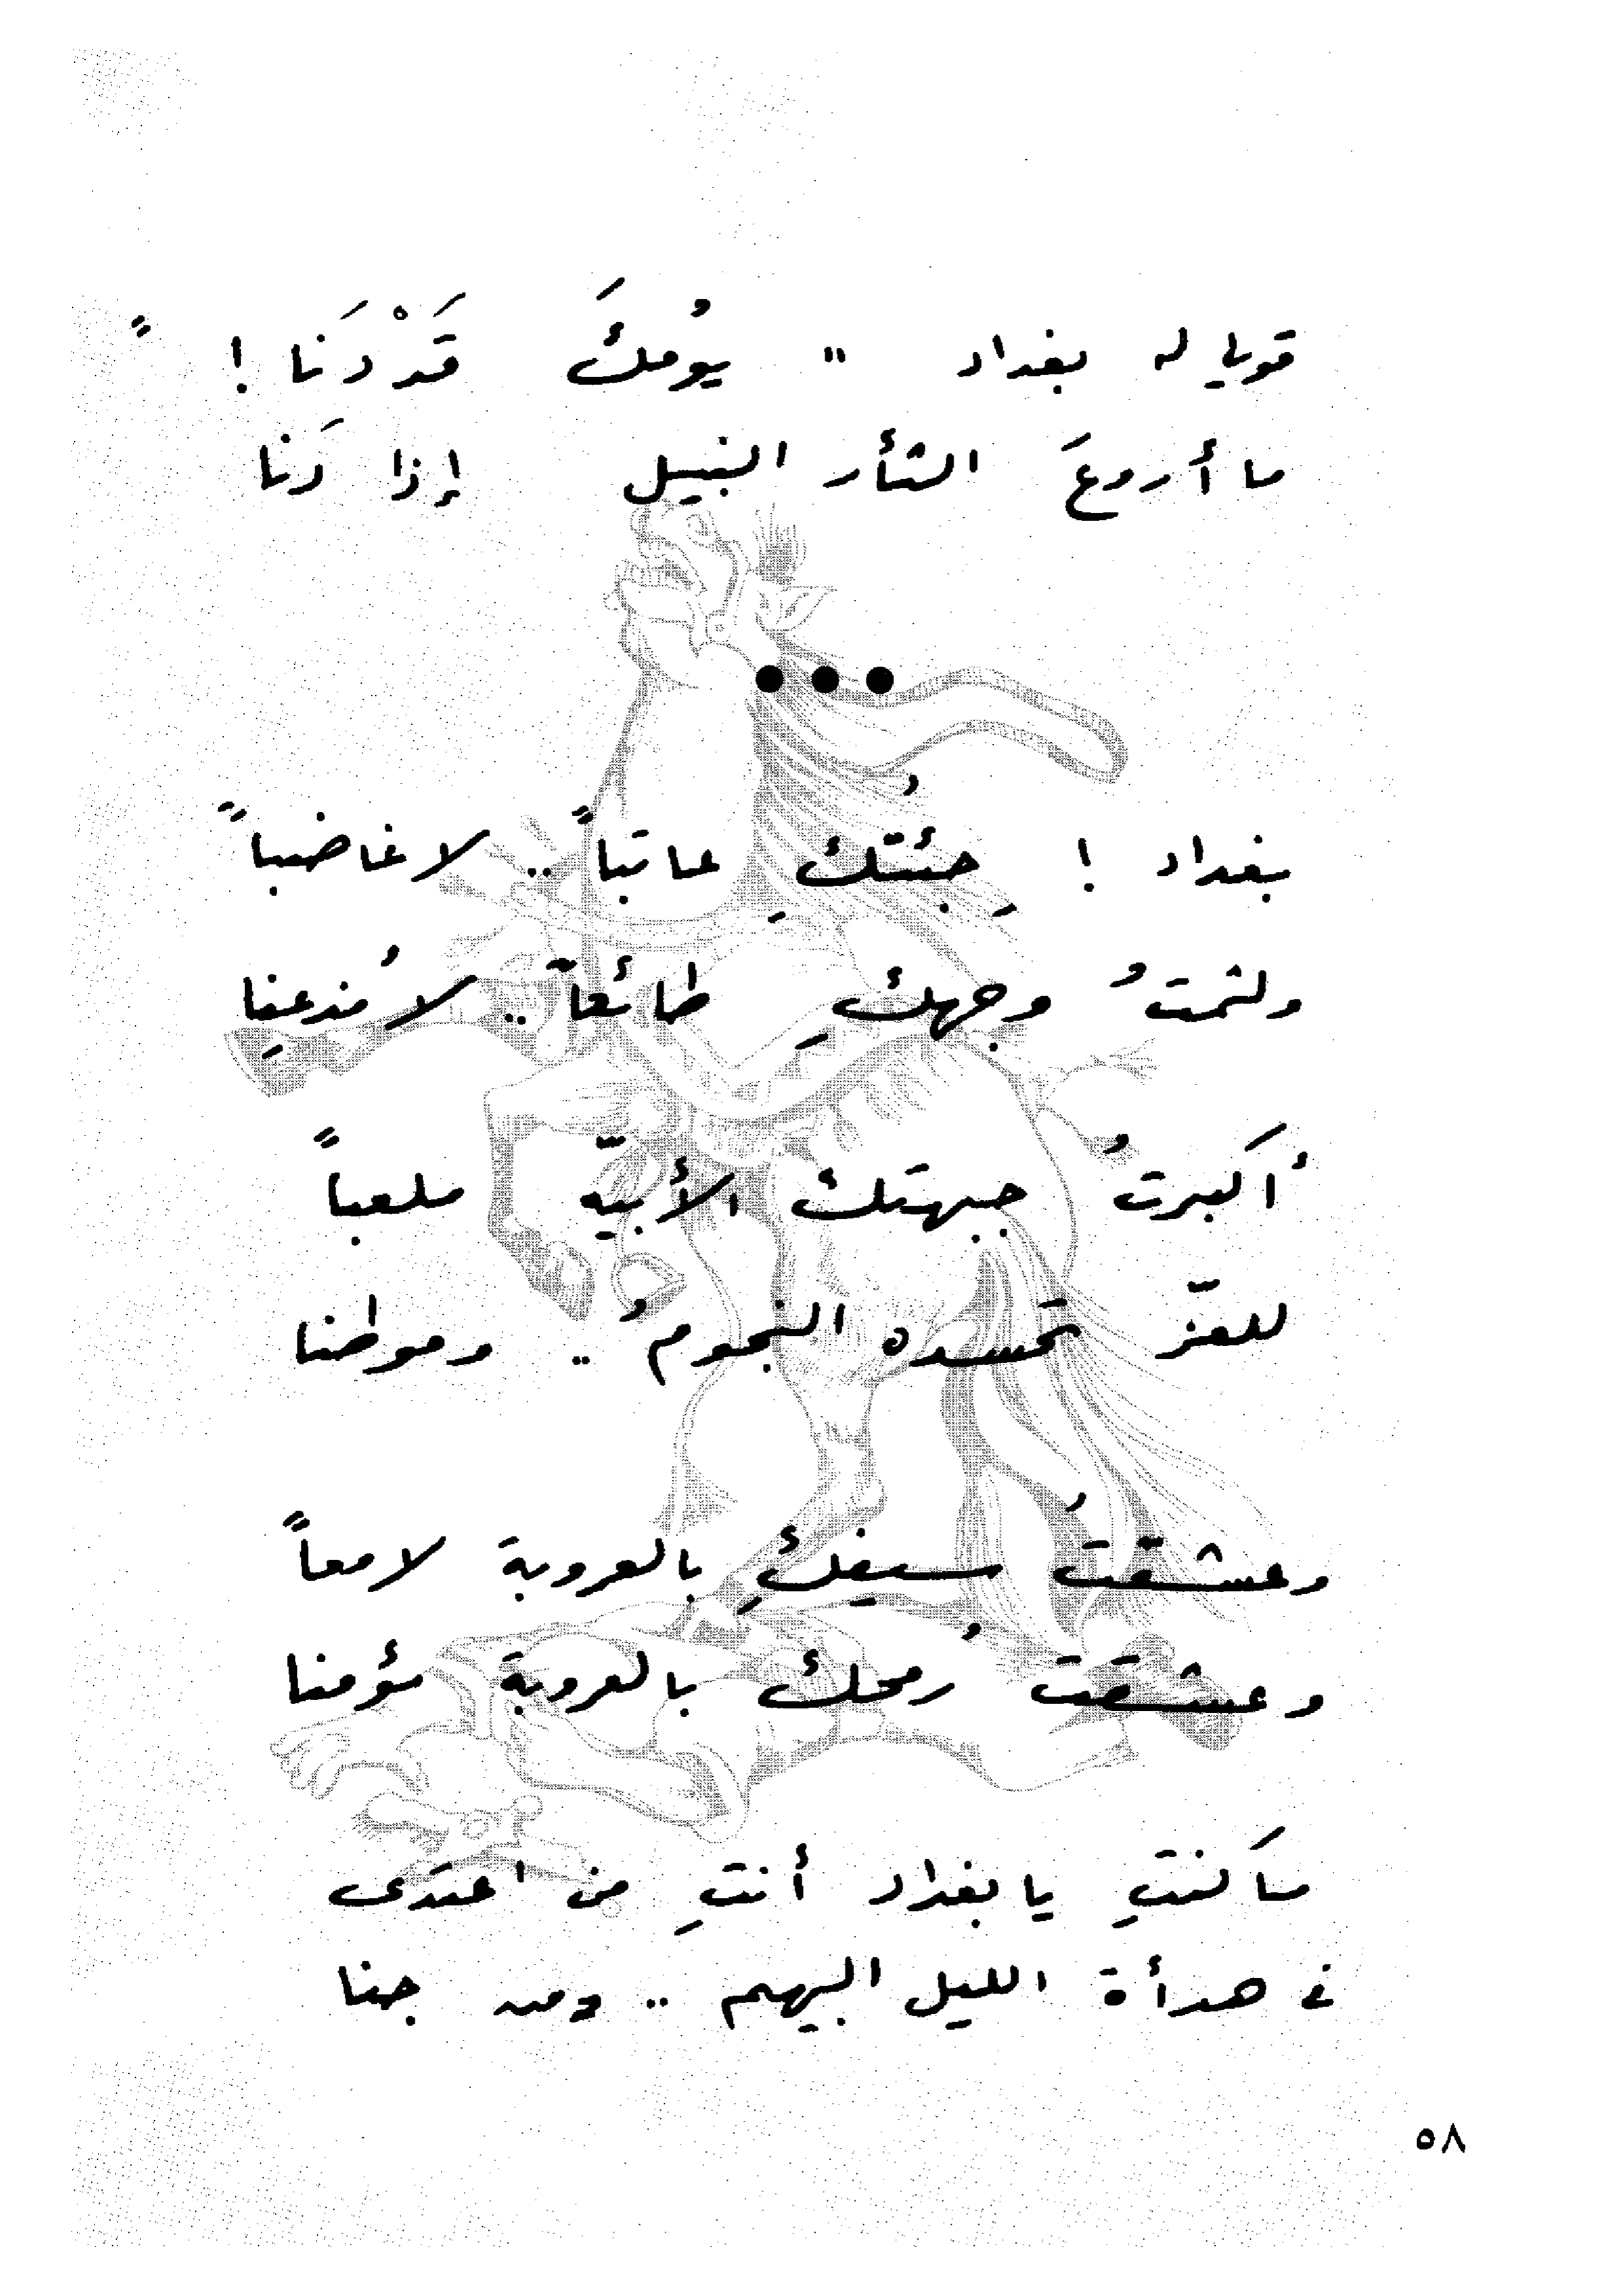 قولي له بغداد " يوُمكَ قَدْ دَنا ! "
ما أروعَ الثأر النبيل إذا دَنا
•••
بغداد ! جِئتُكِ عاتباً .. لا غاضباً
ولثمتُ وجهكِ طائعاً .. لا مُذعنِا
أكبرتُ جبهتك الأبيّه ملعباً
للعزّ تحسده النجومُ .. وموطنا
وعشقتُ سيفكِ بالعروبة لامعاً
وعشقتُ رمحك بالعروبة مؤمنا
ما كنتِ يا بغداد أنتِ من اعتدى
في هدأة الليل البهيم .. ومن جنا
٥٨